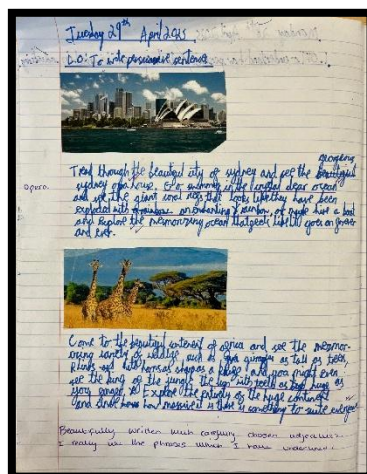 Tuesday 29th April 2025
L.O: To write persuasive sentences
gorgeous
Trek through the beautiful city of sydney and see the beautiful
opera
sydney opra house. Go swimming in the crystal clear ocean
and see the giant coral reefs that looks like they have been
exploded with a rainbow. an enchanting rainbow, or maybe hire a boat
and explore the mesmorizing ocean that feels like it goes on forever
and ever.
Come to the beautiful of africa and see the
variety of such as giraffes as tall as trees,
Rhinos with horns as sharp as a and you might even
see the king of the jungle the lion with teeth as huge as
your Explore the of the huge continent
and how massive it is there is something to suite everyone
Beautifully written with carefully chosen adjectives
I really like the phrases which I have underlined.